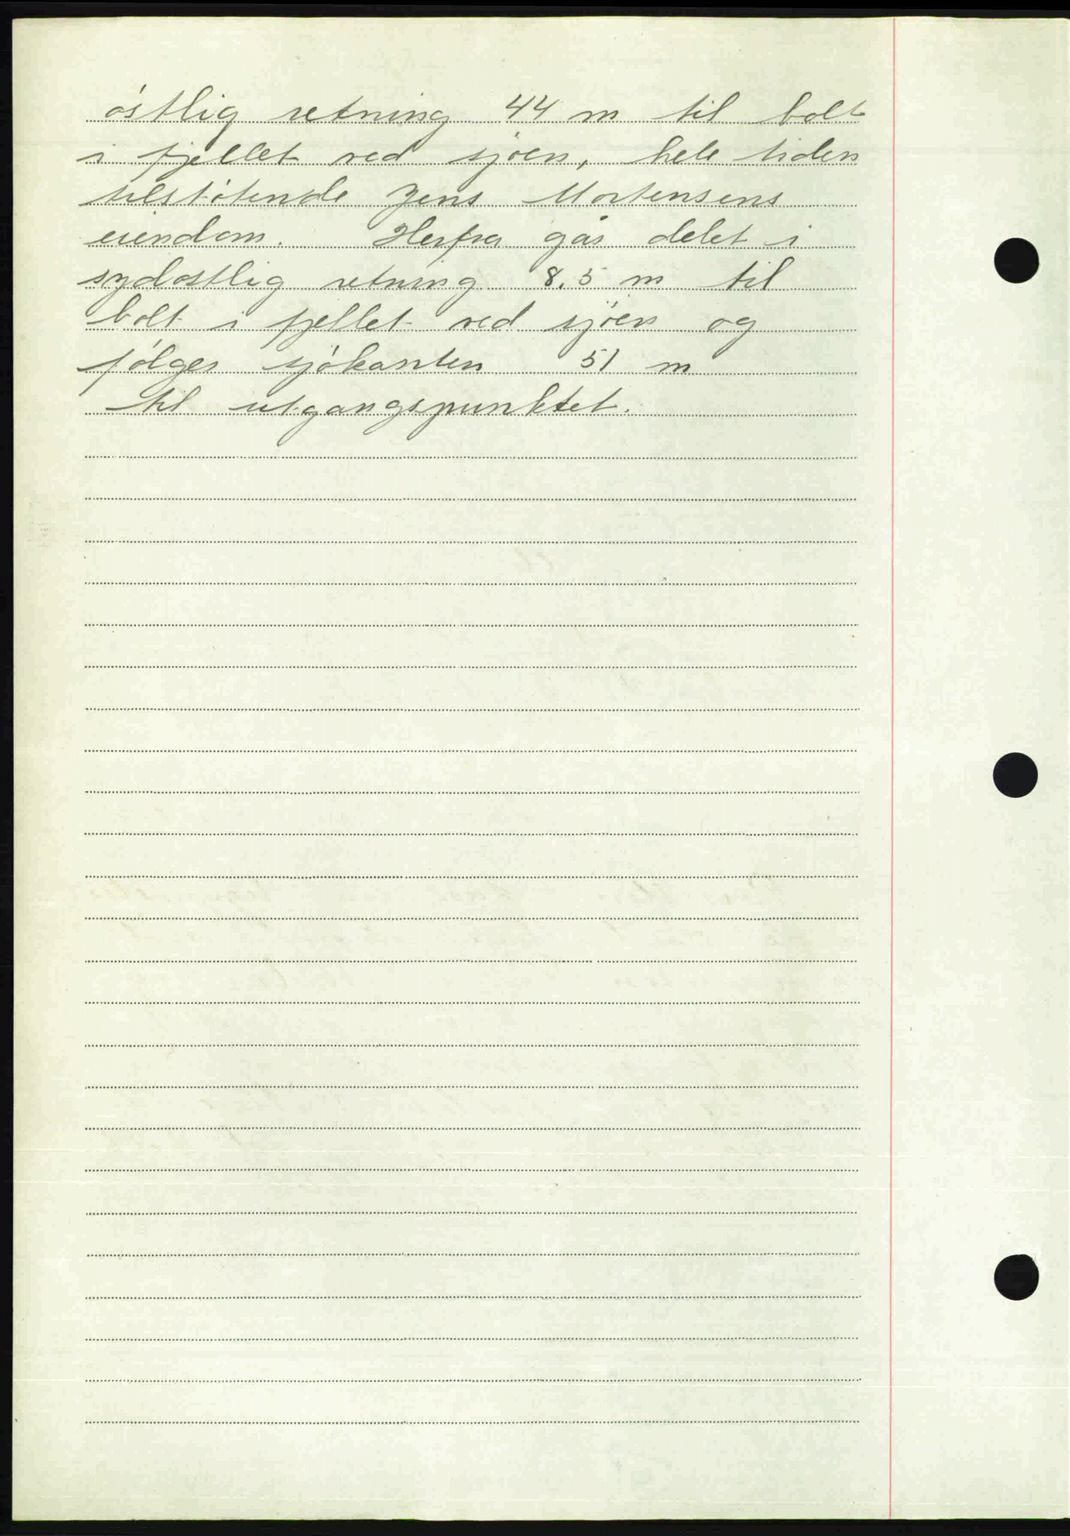 östlig retning 44 m til bolt
i fjellet ved sjöen, hele tiden
tilstötende Jens Mortensens
eiendom. Herfra går delet i
sydostlig retning 8.5 m til
bolt i fjellet ved sjöen og
följes sjökanten 51 m
til utgangspunktet.